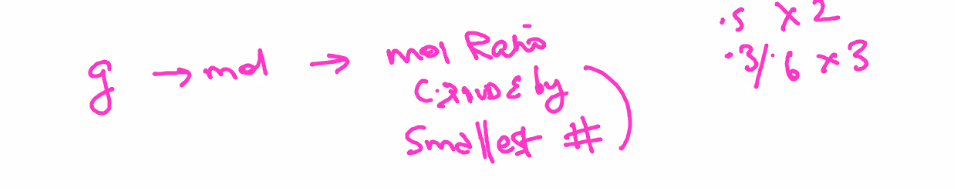 g → mol → mol Ratio
(divide by
smallest #)
.5 x2
.3/.6 x3